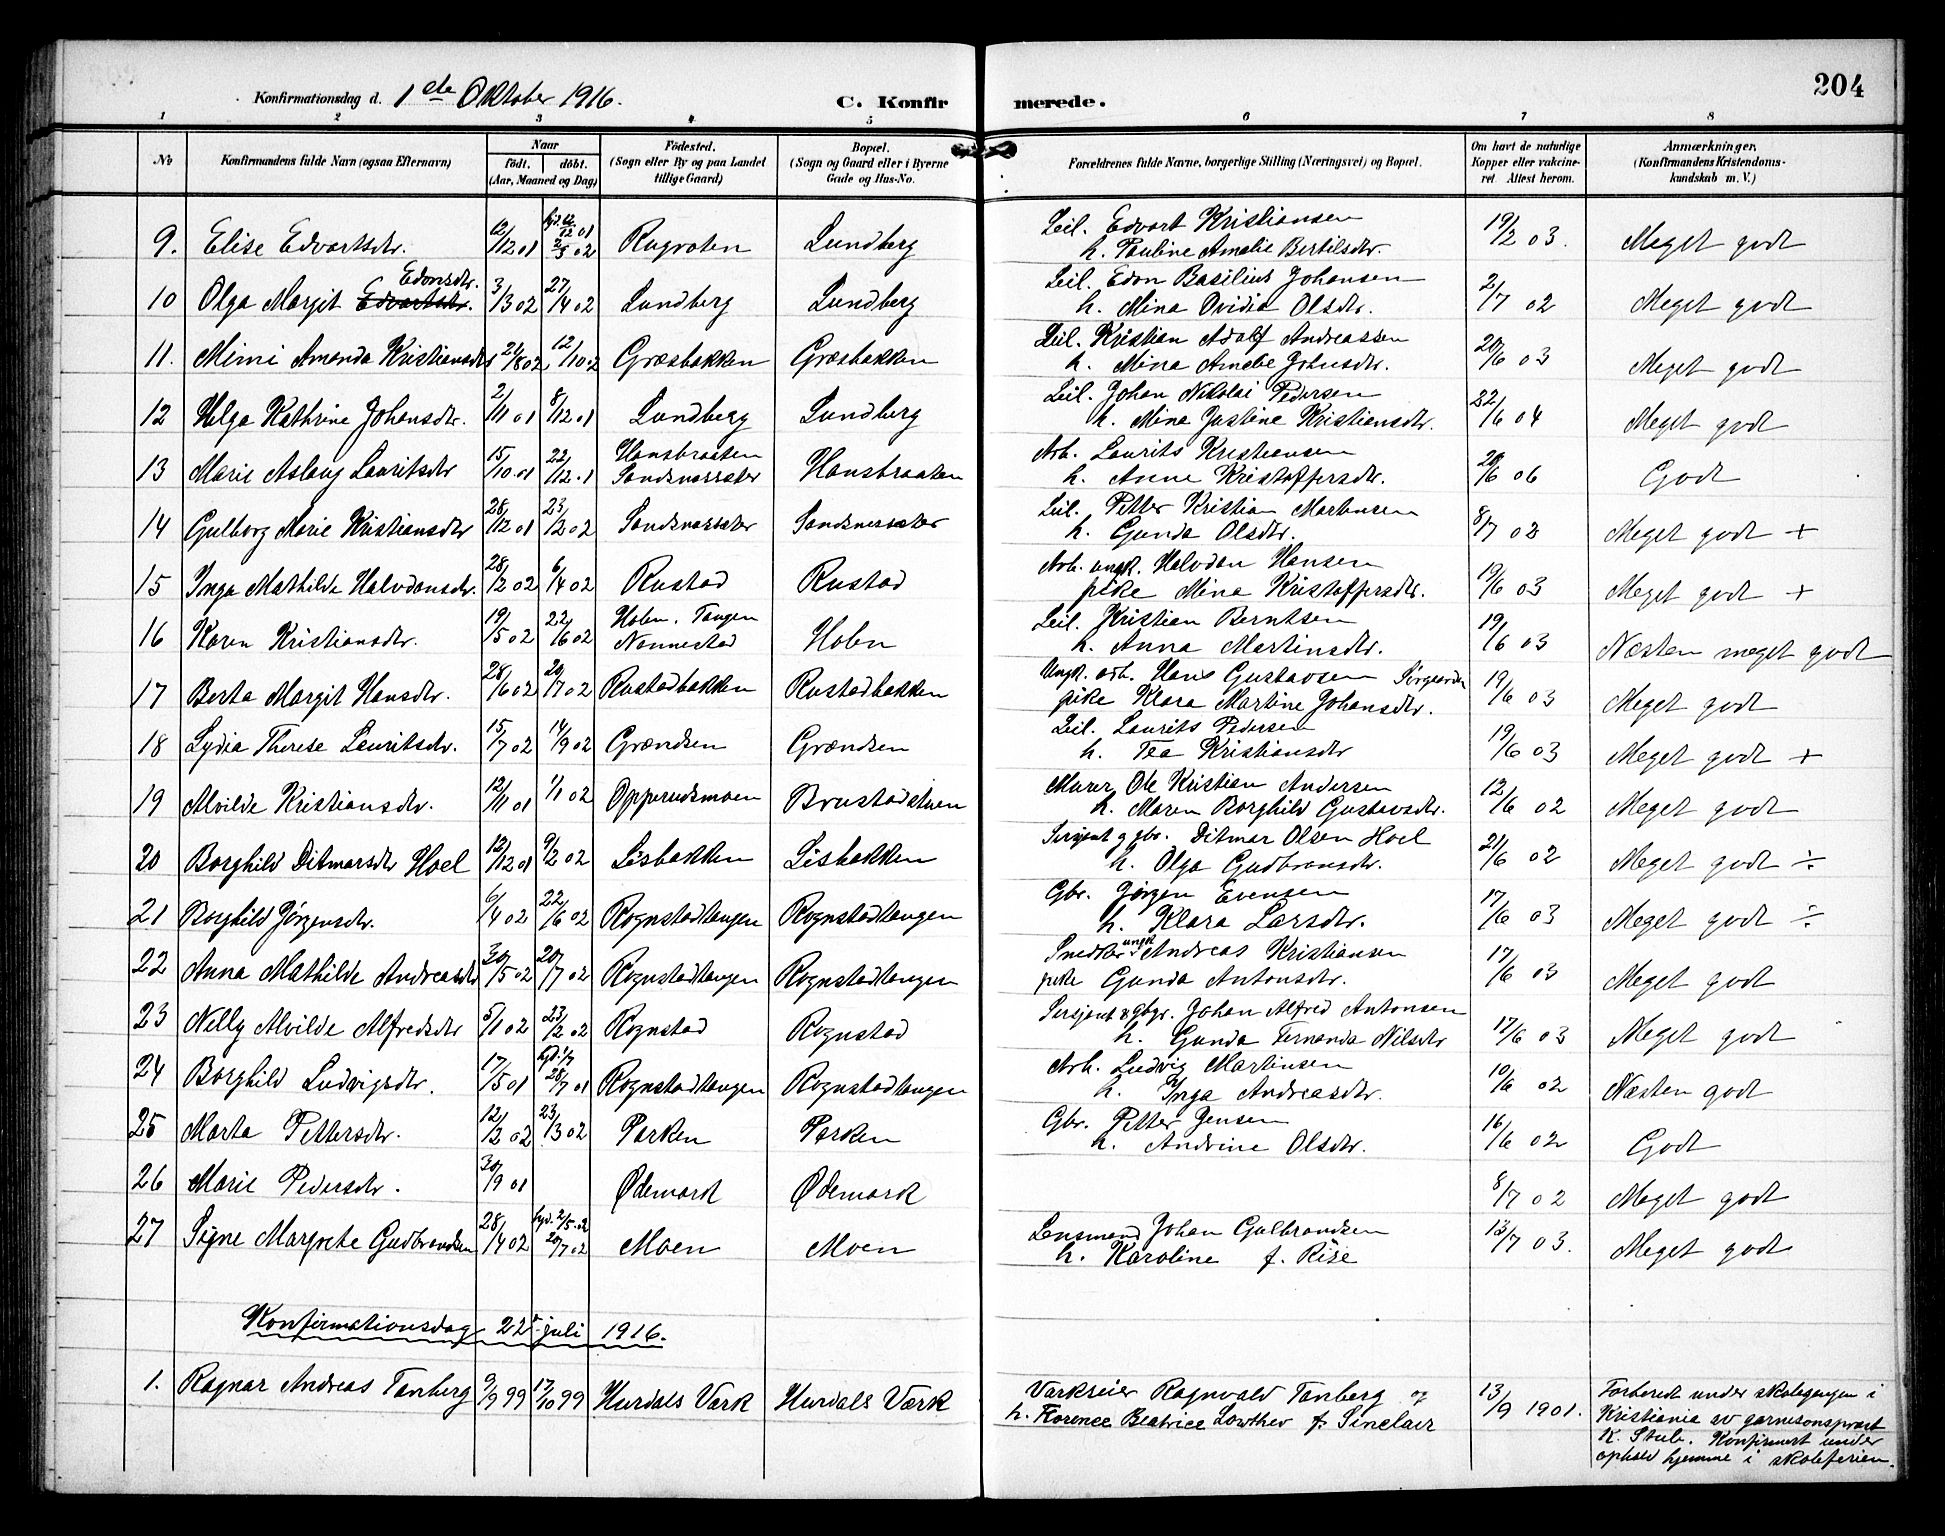 204
Konfirmationsdag d. 1ste Oktober 1916.
C. Konfirmerede.
1 2 3 4 5 6 7 8
No
Konfirmandens fulde Navn (ogsaa Efternavn)
Naar
født. døbt.
(Aar, Maaned og Dag)
Fødested.
(Sogn eller By og paa Landet
tillige Gaard)
Bopæl.
(Sogn og Gaard eller i Byerne
Gade og Hus-No.
Forældrenes fulde Navne, borgerlige Stilling (Næringsvei) og Bopæl.
Om havt de naturlige
Kopper eller vakcine-
ret Attest herom.
Anmærkninger,
(Konfirmandens Kristendoms-
kundskab m. V.)
9. Elise Edvartsdtr. 12/12 01 hjd. 12/12 01 2/3 02 Rugroten Lundberg Leil. Edvart Kristiansen 19/2 03. Meget godt
h. Pauline Amalie Bertilsdtr.
10 Olga Margit Edvartsdtr. Edonsdtr. 3/3 02 27/4 02 Lundberg Lundberg Leil. Edon Basilius Johansen 2/7 02 Meget godt
h. Mina Ovidia Olsdtr.
11. Mimi Amanda Kristiansdtr 24/8 02 12/10 02 Græsbakken Græsbakken Leil. Kristian Adolf Andreassen 20/6 03 Meget godt
h. Mina Amalie Johnsdtr.
12 Helga Kathrine Johansdtr. 2/11 01 8/12 01 Lundberg Lundberg Leil. Johan Nikolai Pedersen 22/6 04 Meget godt
h. Mina Justine Kristiansdtr.
13 Marie Aslaug Lauritsdtr 15/10 01 22/12 1 Hansbraaten Sandsnessæter Hansbraaten Arb. Laurits Kristiansen 20/6 06 Godt
h. Anne Kristoffersdtr.
14 Gulborg Marie Kristiansdtr 28/12 01 23/2 02 Sandsnessæter Sandsnessæter Leil. Petter Kristian Martinsen 8/7 02 Meget godt +
h. Gunda Olsdtr.
15 Inga Mathilde Halvdansdtr. 28/2 02 6/4 02 Rustad Rustad Arb. ungk. Halvdan Hansen 19/6 03 Meget godt +
pike Mina Kristoffersdtr.
16 Karen Kristiansdtr. 19/5 02 22/6 02 Holen, Tangen Nannestad Holen Leil. Kristian Berntsen 19/6 03 Næsten meget godt
h. Anna Martinsdtr.
17 Berta Margit Hansdtr. 28/6 02 20/7 02 Rustadbakken Rustadbakken Ungk. arb. Hans Gustavsen 19/6 03 Meget godt
pike Klara Martine Johansdtr.
18 Lydia Therese Lauritsdtr. 15/7 02 14/9 02 Grændsen Grændsen Leil. Laurits Pedersen 19/6 03 Meget godt +
h. Tea Kristiansdtr
19 Alvilde Kristiansdtr. 12/11 01 1/1 02 Opperudsmoen Brustadstuen Murer Ole Kristian Andersen 12/6 02 Meget godt
h. Maren Borghild Gustavsdtr.
20 Borghild Ditmarsdtr Hoel 12/12 01 9/2 02 Lisbakken Lisbakken Sersjant og gbr. Ditmar Olsen Hoel 21/6 02 Meget godt ÷
h. Olga Gudbransdtr.
21 Borghild Jørgensdtr. 6/4 02 22/6 02 Rognstadtangen Rognstadtangen Gbr. Jørgen Evensen 17/6 03 Meget godt ÷
h. Klara Larsdtr.
22 Anna Mathilde Andreasdtr 30/5 02 20/7 02 Rognstadtangen Rognstadtangen Snedker ungk. Andreas Kristiansen 17/6 03 Meget godt
pike Gunda Antonsdtr.
23 Nelly Alvilde Alfredsdtr 5/1 02 23/2 02 Rognstad Rognstad Sersjant & gbgr. Johan Alfred Antonsen 17/6 03 Meget godt
h. Gunda Fernanda Nilsdtr
24 Borghild Ludvigsdtr. 17/5 01 hjd. 1/7 28/7 01 Rognstadtangen Rognstadtangen Arb. Ludvig Martinsen 10/6 02 Næsten godt
h. Inga Andreasdtr.
25 Marta Pettersdtr. 12/2 02 23/3 02 Parken Parken Gbr. Petter Jensen 16/6 02 Godt
h. Andrine Olsdtr.
26 Marie Pedersdtr. 30/9 01 Ødemark Ødemark 8/7 02 Meget godt
27 Signe Margrete Gudbrandsen 28/4 02 hjd. 2/5 02 20/7 02 Moen Moen Lensmand Johan Gulbrandsen 13/7 03. Meget godt
h. Karoline f. Rise
Konfirmationsdag 22 juli 1916.
1. Ragnar Andreas Tanberg 9/9 99 17/10 99 Hurdals Værk Hurdals Værk Værkseier Ragnvald Tanberg og 13/9 1901.
h. Florence Beatrice Lowther f. Sinclair
Forberedt under skolegangen i
Kristiania av garnisonsprest
K. Stub. Konfirmert under
ophold hjemme i skoleferien.